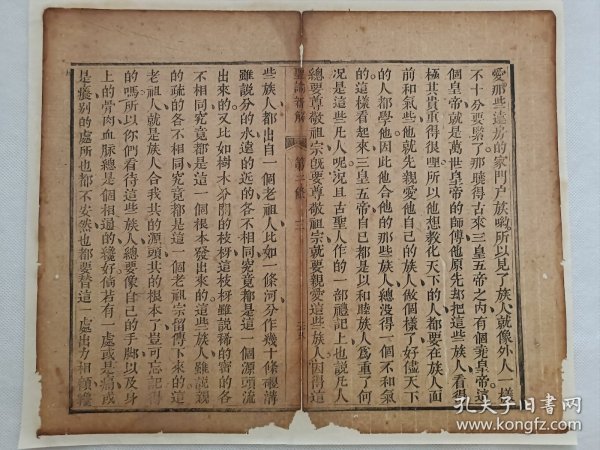 愛那些遠房的家門戶族喇所以見了族人就像外人一樣
不十分要緊了那曉得古來三皇五帝之內有個堯皇帝這
個皇帝就是萬世皇帝的師傅他原先却把這些族人看得
極其貴重得很哩所以他想教化天下的人都要在族人面
前和氣些他就先親愛他自己的族人做個樣了好儘天下
的人都學他因此他合他的那些族人總沒得一個不和氣
的這樣看起來三皇五帝自己都是以和睦族人爲重了何
况是這些凡人呢况且古聖人作的一部禮記上也説凡人
總要尊敬祖宗旣要尊敬祖宗就要親愛這些族人因得這
聖諭 解
第二條
三
些族人都出自一個老祖人比如一條河分作幾十條堰溝
雖説分的水遠的近的各不相同究竟都是這一個源頭流
出來的又比如樹木分開的枝枒這枝枒雖説稀的密的各
不相同究竟都是這一個根本發出來的這些族人雖説親
的疏的各不相同究竟都是這一個老祖宗留傳下來的這
老祖人就是族人合我共的源頭共的根本了豈可忘記得
的嗎所以你們看待這些族人總要像自己的手脚以及身
上的骨肉血脈總是個相通的纔好倘若有一處或是瘡或
是癢別的處所也都不安然也都要替這一處出力相顧纔
孔夫子旧书网
www.kongfz.com